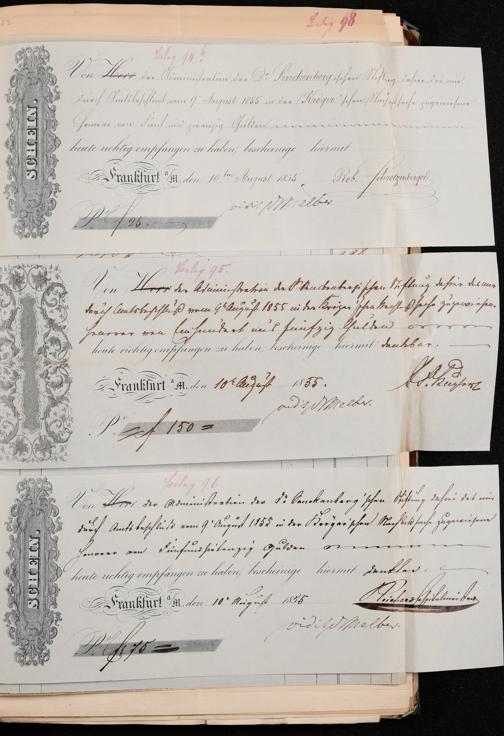 Beleg 98
Beleg 94b
Von Herr der Administration der Dr. Senckenberg'schen Stiftung dahier das mir
durch Amtsbeschluß vom 9. August 1855 in der Kröger'schen Nachlaßsache zugewiesene
Honorar von fünf und zwanzig Gulden
heute richtig empfangen zu haben, bescheinige hiermit
Frankfurt a/M. den 10ten August 1855. Rob. Schrotzenberger
SCHEIN.
Pr. f 25.
vidi GDMelber
Beleg 95.
Von Herr der Administration der Dr Senckenberg'schen Stiftung dahier das mir
durch Amtsbeschluß vom 9t August 1855 in der zugewiesene
Honorar von Einhundert und fünfzig Gulden
heute richtig empfangen zu haben, bescheinige hiermit dankbar.
Frankfurt a/M. den 10t August 1855.
vidi GDMelber.
Pr f 150 =
Beleg 96
Von Herr der Administration der Dr Senckenberg'schen Stiftung dahier das mir
durch Amtsbeschluß vom 9t August 1855 in der Nachlaßsache zugewiesene
Honorar von Fünfundsiebenzig Gulden
heute richtig empfangen zu haben, bescheinige hiermit dankbar.
Frankfurt a/M. den 10t August 1855
SCHEIN.
vidi GDMelber.
Pr. f 75 =